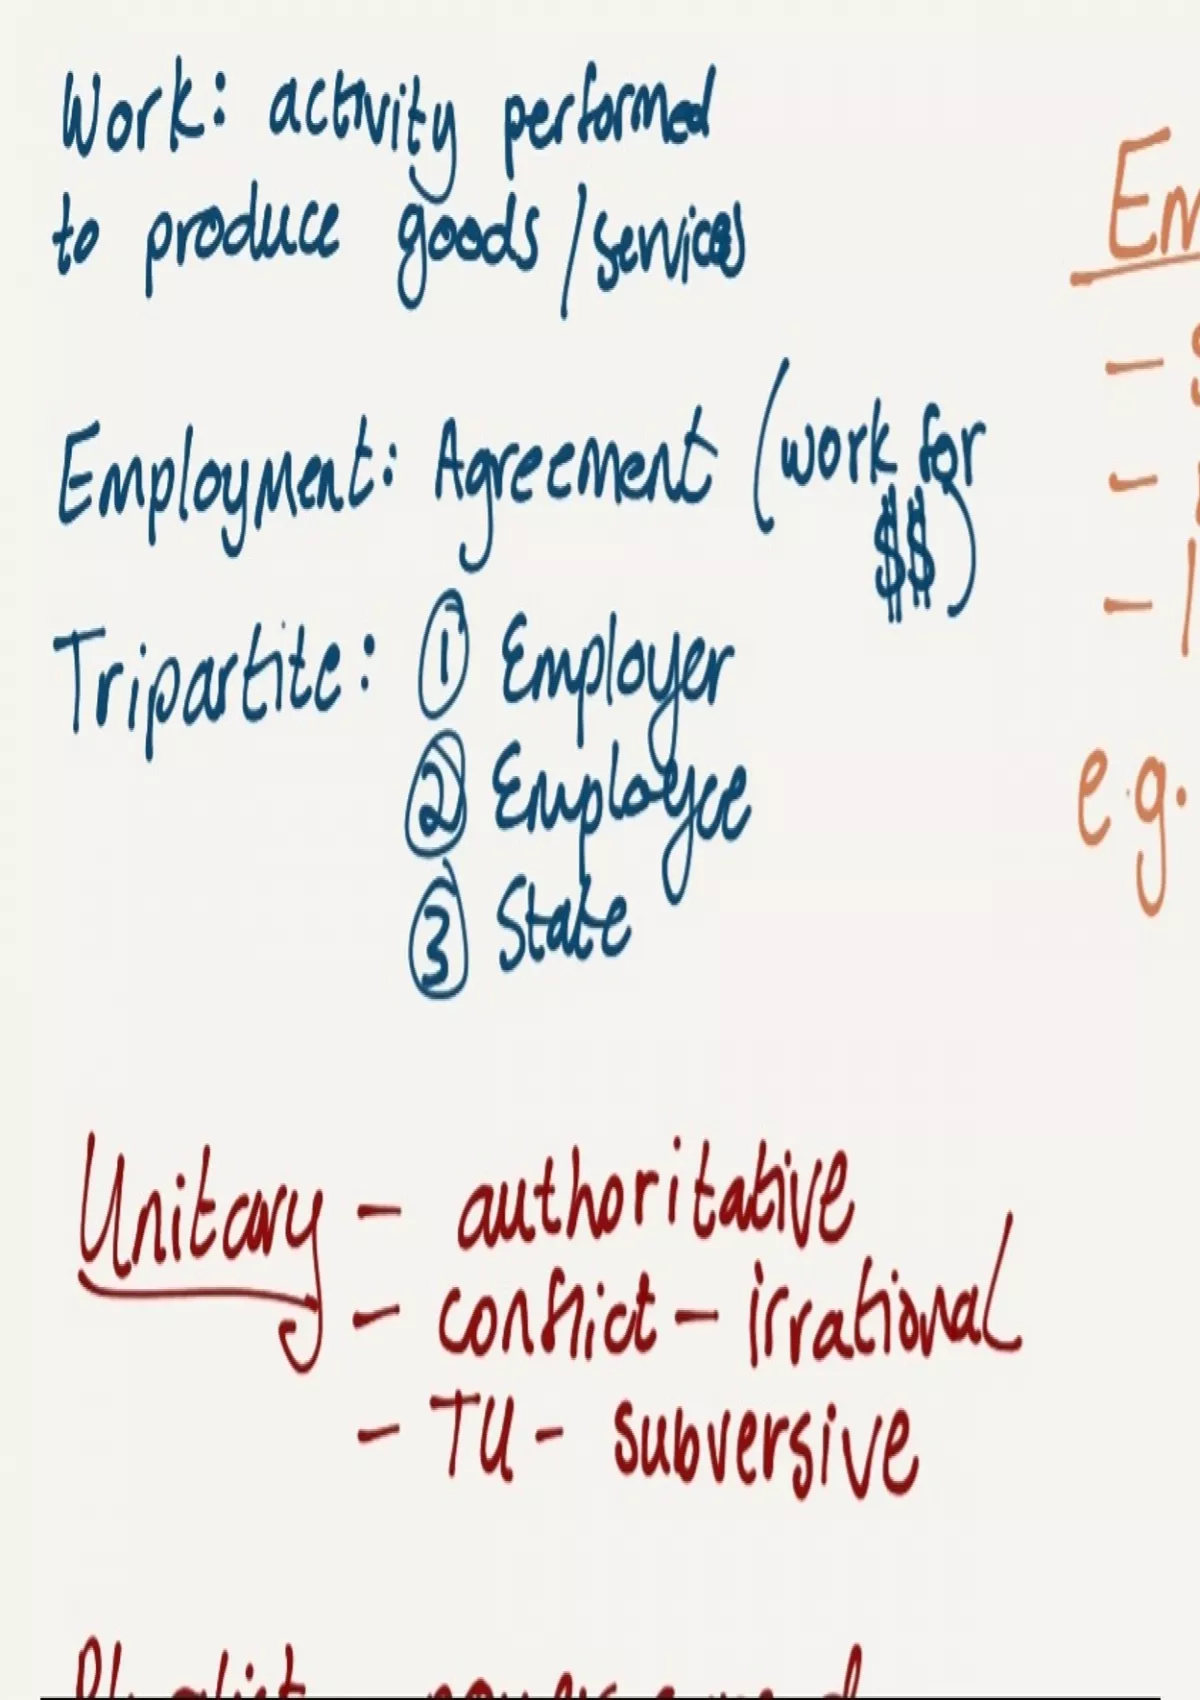 Work: activity performed
to produce goods/services
Employment: Agreement (work for
$$)
Tripartite: ① Employer
② Employee
③ State
Unitary – authoritative
– conflict – irrational
– TU – subversive
e.g.